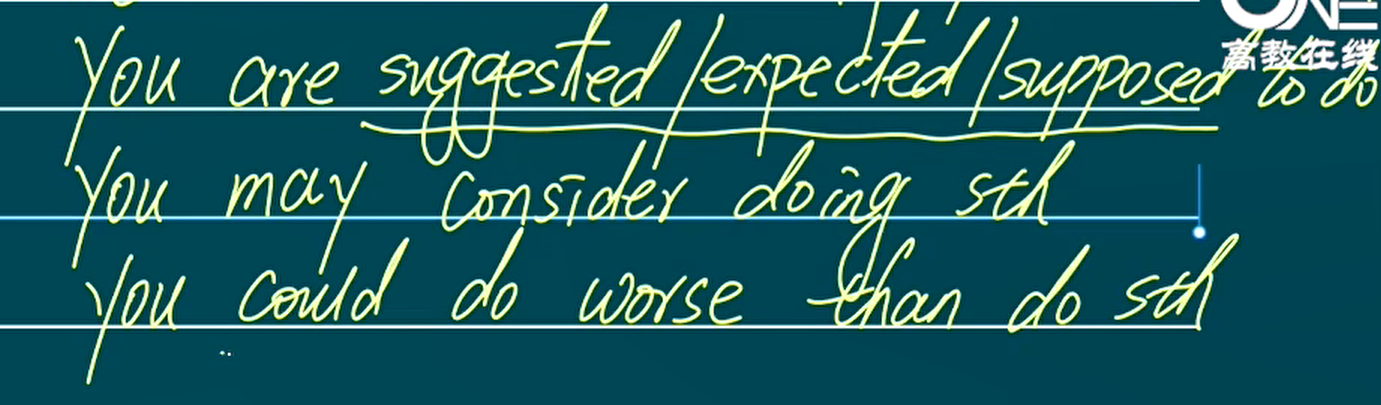 ONE
高教在线
You are suggested/expected/supposed to do
You may consider doing sth
You could do worse than do sth